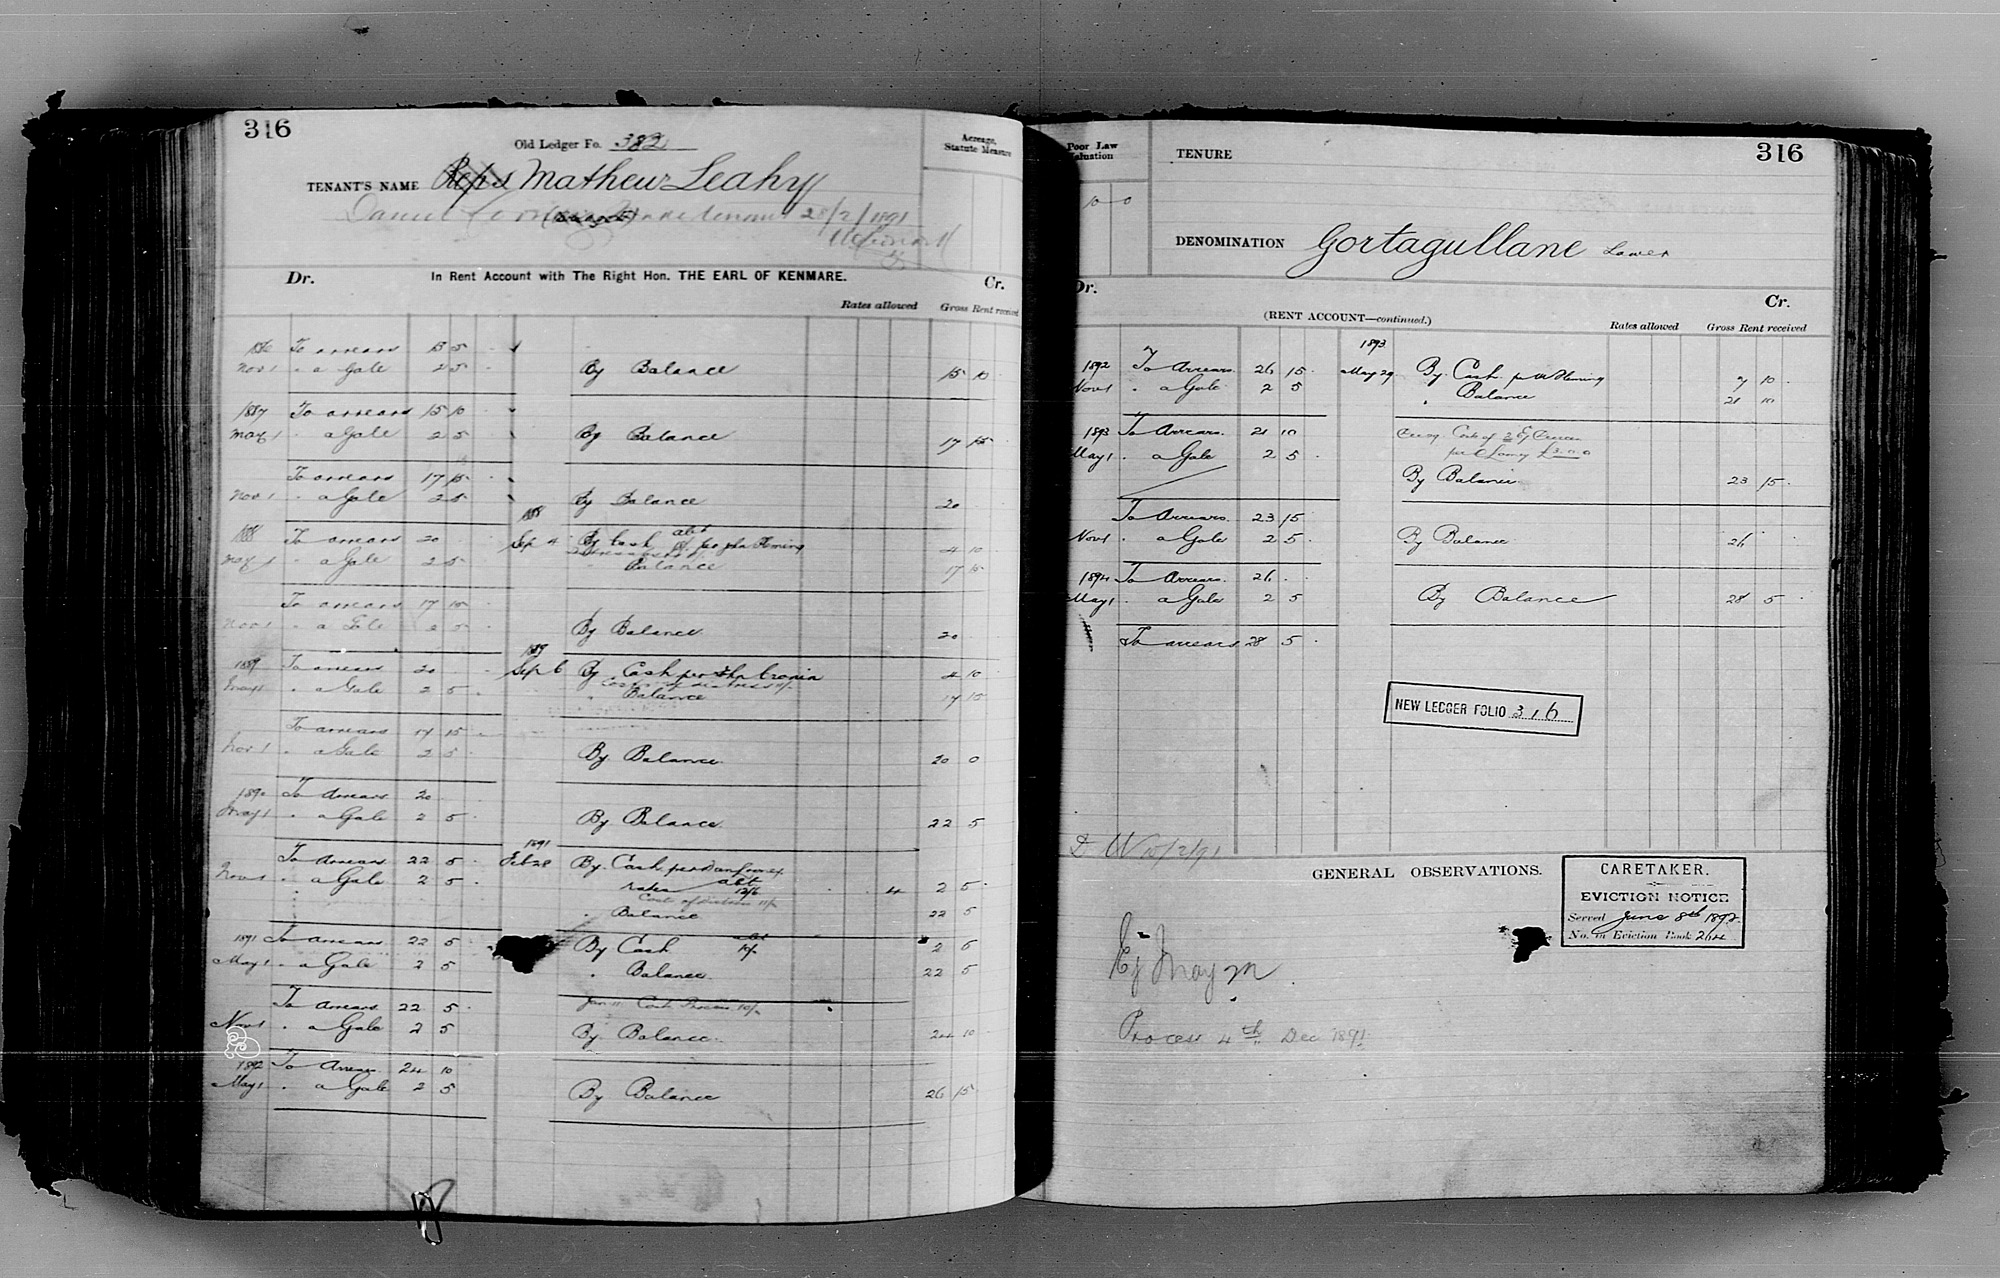 316
Old Ledger Fo. 382
Acreage, Statute Measure
TENANT'S NAME Reps Mathew Leahy
Daniel made tenant 28/2/1891
Dr. In Rent Account with The Right Hon. THE EARL OF KENMARE. Cr.
Rates allowed Gross Rent received
To arrears 15 5
Nov 1 " a Gale 2 5 By Balance 15 10
1887 To arrears 15 10
May 1 " a Gale 2 5 By Balance 17 15
To arrears 17 15
Nov 1 " a Gale 2 5 By Balance 20
1888
1888 To arrears 20 Sep 4 By Cash per John Fleming 4 10
May 1 " a Gale 2 5 " Balance 17 15
To arrears 17 15
Nov 1 " a Gale 2 5 By Balance 20
1889
1889 To arrears 20 Sep 6 By Cash per Cronin 4 10
May 1 " a Gale 2 5 " Balance 17 15
To arrears 17 15
Nov 1 " a Gale 2 5 By Balance 20 0
1890 To Arrears 20
May 1 " a Gale 2 5 By Balance 22 5
1891
To Arrears 22 5 Feb 28 By Cash per Dan
Nov 1 " a Gale 2 5 rates abt 12/6 4 2 5
Cost of Distress 11/-
" Balance 22 5
1891 To Arrears 22 5 By Cash abt 10/- 2 5
May 1 " a Gale 2 5 " Balance 22 5
To Arrears 22 5 Jan 11 Cost Process 10/-
Nov 1 " a Gale 2 5 By Balance 24 10
1892 To Arrears 24 10
May 1 " a Gale 2 5 By Balance 26 15
316
Poor Law Valuation
10 0
TENURE
DENOMINATION Gortagullane Lower
Dr. Cr.
(RENT ACCOUNT—continued.)
Rates allowed Gross Rent received
1893
1892 To Arrears 26 15 May 29 By Cash per Fleming 7 10
Nov 1 " a Gale 2 5 " Balance 21 10
1893 To Arrears 21 10 Cost of 2 Ej
May 1 " a Gale 2 5 per £3.0.0
By Balance 23 15
To Arrears 23 15
Nov 1 " a Gale 2 5 By Balance 26
1894 To Arrears 26
May 1 " a Gale 2 5 By Balance 28 5
To arrears 28 5
NEW LEDGER FOLIO 316
GENERAL OBSERVATIONS.
CARETAKER.
EVICTION NOTICE
Served June 8th 1892
No. in Eviction Book 264
Process 4th Dec 1891